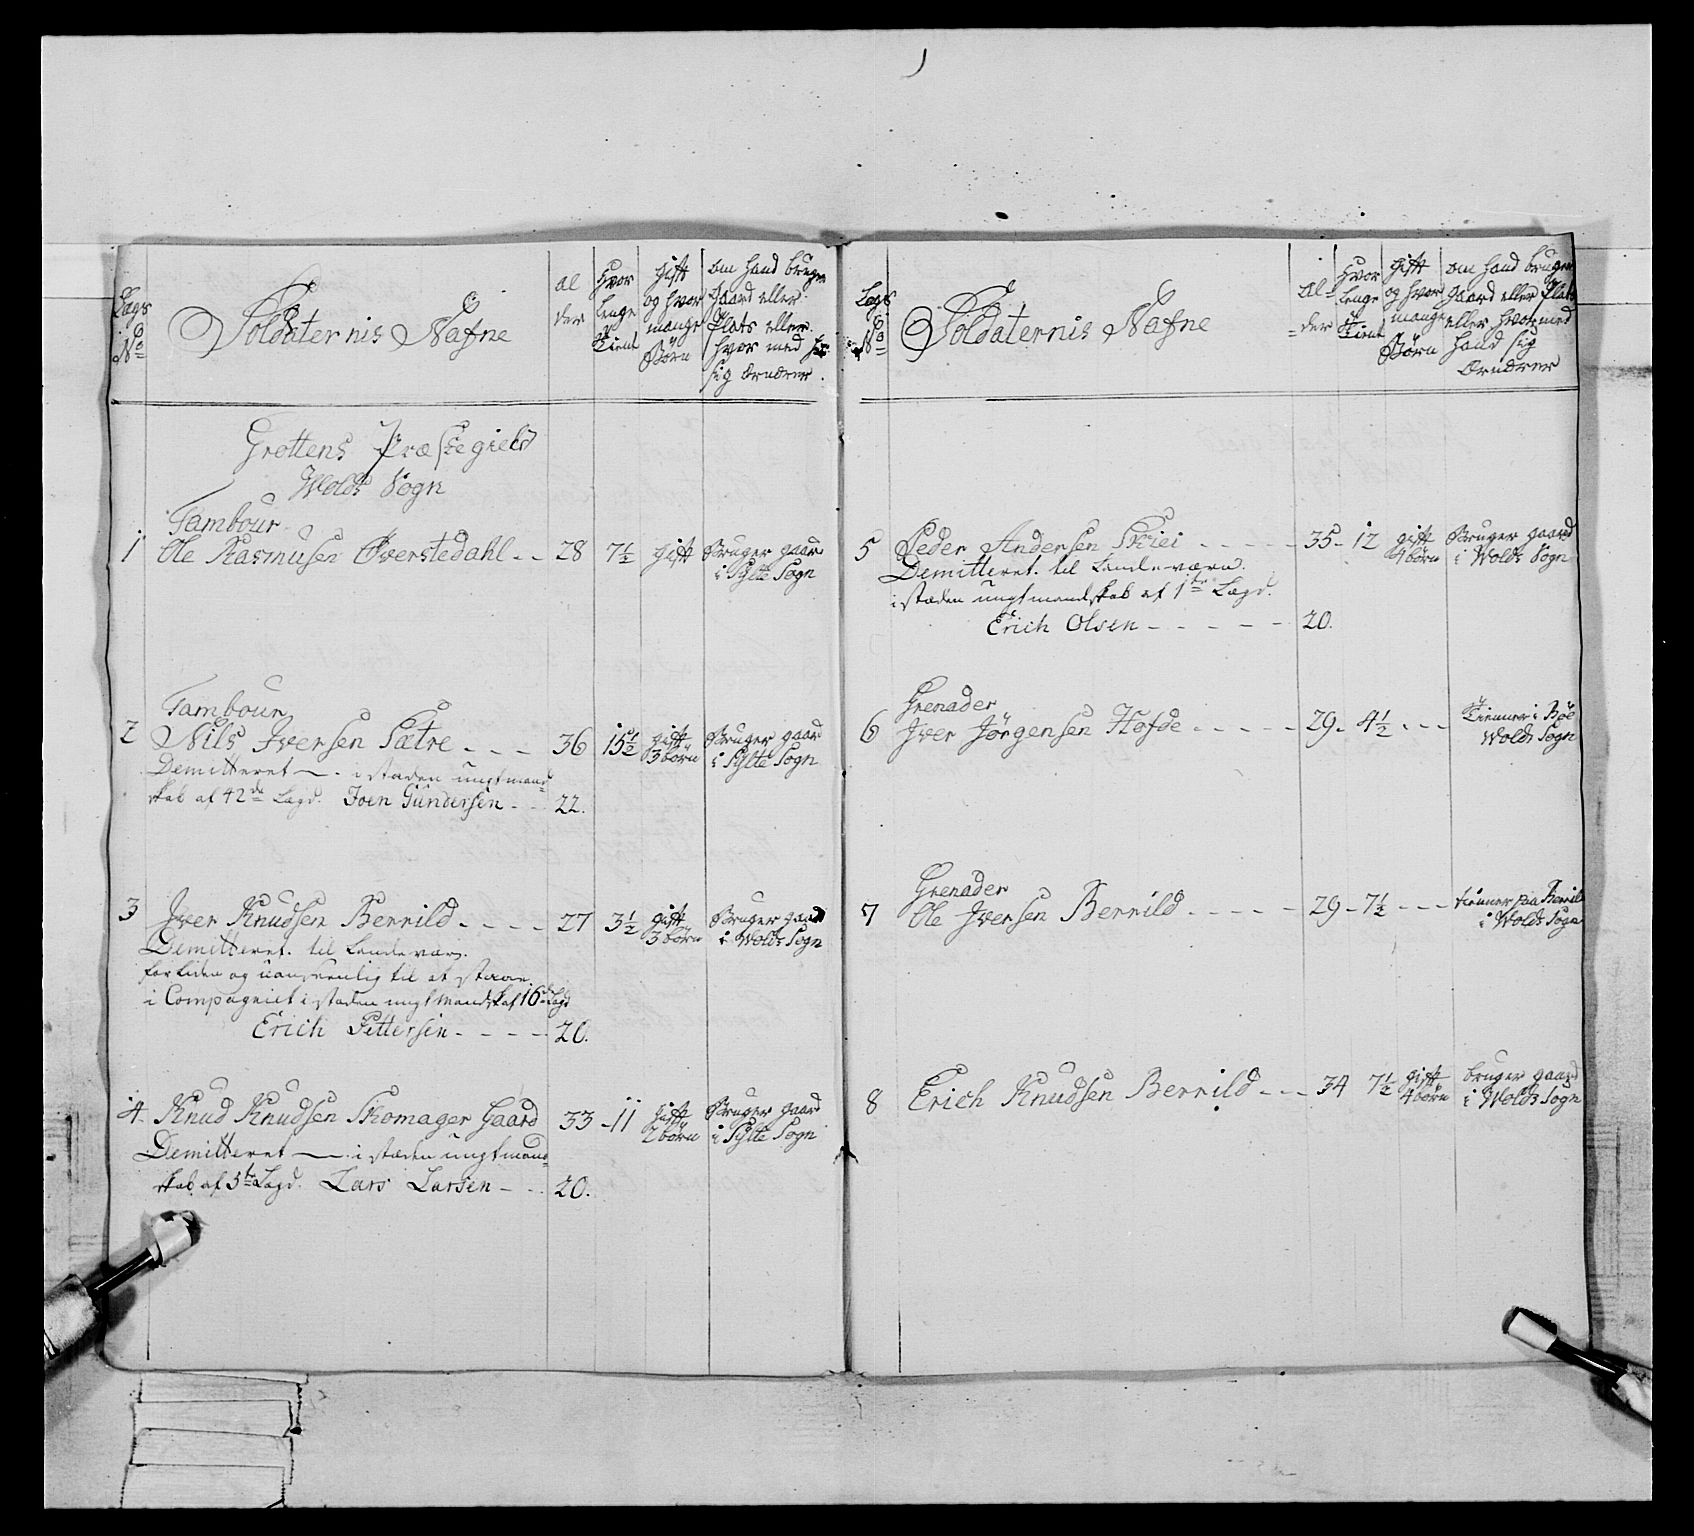 Lags
No
Soldaternis Nafne
al
der
Hvor
lenge
Tient
gift
og hvor
mange
Børn
om hand bruger
gaard eller
Plats eller
hvor med
sig Ærnærer
Grøttens Præstegield
Wolds Sogn
Tambour
1 Ole Rasmusen Øverstedahl - - 28 7½ gift Bruger gaard
i Sylte Sogn
Tambour
2 Nils Iversen Sætre - - - 36 15½ gift Bruger gaard
3 børn i Sylte Sogn
Demitteret - i staden ungt mand=
skab af 42de Lægd. Joen Gundersen - - 22.
3 Iver Knudsen Berrild - - - - 27 3½ gift Bruger gaard
3 børn i Wolds Sogn
Demitteret til Landeværn.
for liden og uanseenlig til at staae
i Compagniet i staden ungt Mandsk af 16de Lægd
Erich Pettersen - - - - 20.
4 Knud Knudsen Skomager Gaard 33 - 11 gift Bruger gaard
2 børn i Sylte Sogn
Demitteret - i stæden ungt mand=
skab af 5te Lægd. Lars Larsen - - 20.
Lægs
No
Soldaternis Nafne
al=
der
Hvor
lenge
Tient
gift
og hvor
mange
Børn
om hand bruger
gaard eller Plats
eller hvor med
hand sig
Ærnærer
5 Peder Andersen Skiei - - - - - 35 - 12 gift Bruger gaard
4 børn i Wolds Sogn
Demitteret til Landeværn.
i stæden ungt mandskab af 1te Lægd.
Erich Olsen - - - - - 20.
Grenader
6 Iver Jørgensen Hofde - - - - - 29 - 4½ - - - Tienner i Bøe
Wolds Sogn
Grenader
7 Ole Iversen Berrild - - - - - 29 - 7½ - - - tienner paa Berrild
i Wolds Sogn
8 Erich Knudsen Berrild - - - 34 7½ gift bruger gaard
4 børn i Wolds Sogn